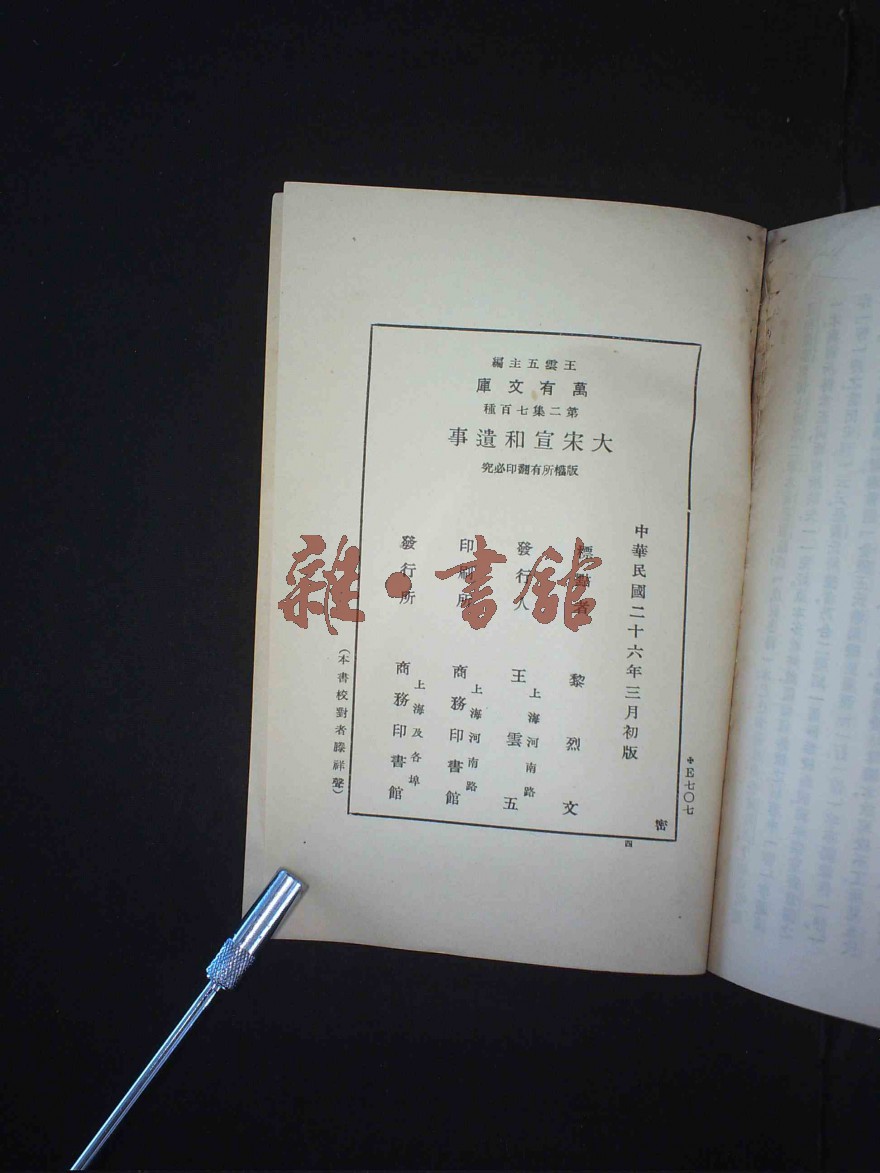 王雲五主編
萬有文庫
第二集七百種
大宋宣和遺事
版權所有翻印必究
中華民國二十六年三月初版
標點者 黎烈文
發行人 王雲五
上海河南路
印刷所 商務印書館
上海河南路
發行所 商務印書館
上海及各埠
(本書校對者滕祥聲)
＊E七〇七
密
四
雜·書館